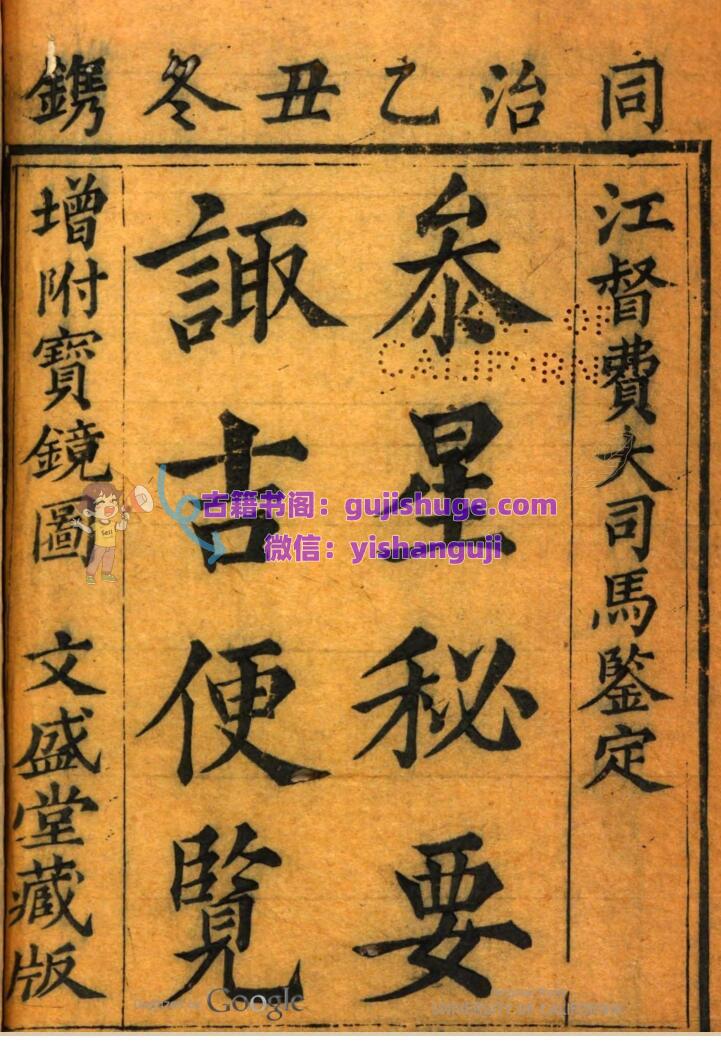 同治乙丑冬鐫
江督費大司馬鑒定
㕘星秘要
諏吉便覧
增附寶鏡圖 文盛堂藏版
OF
CALIFORN
古籍书阁：gujishuge.com
微信：yishanguji
Digitized by Google
UNIVERSITY OF CALIFORNIA